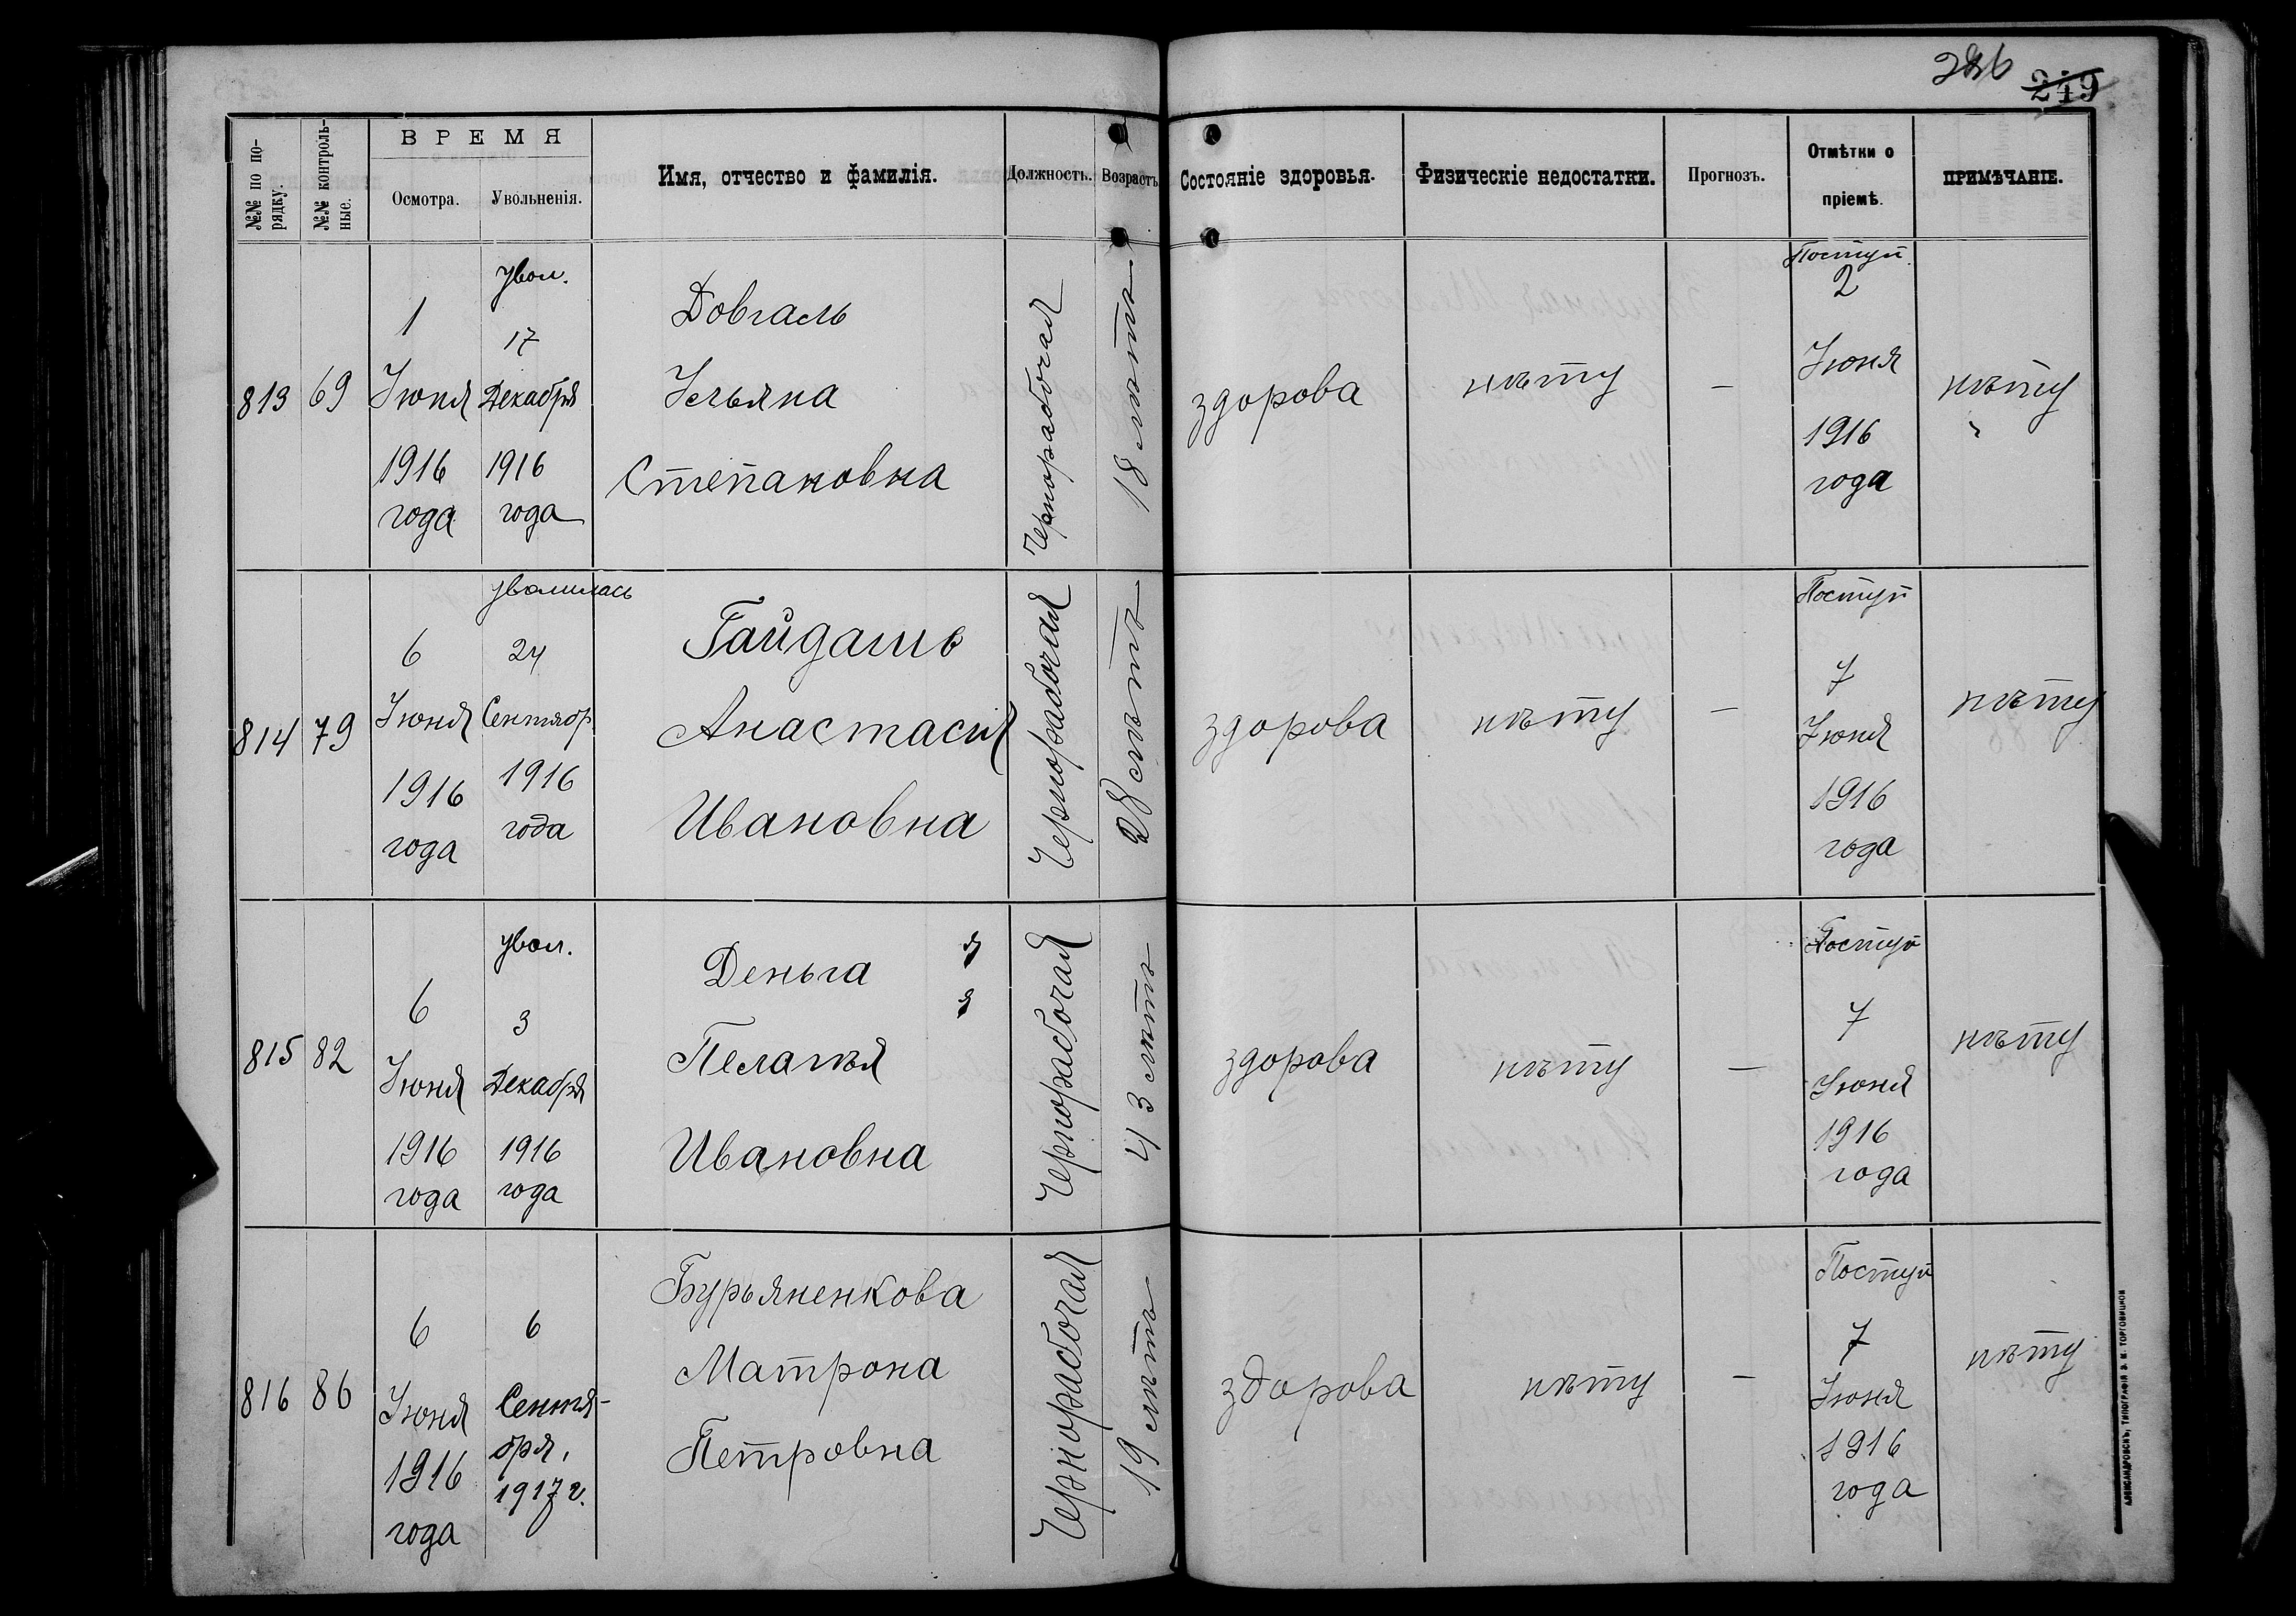 249
№№ по по-
рядку.
№№ контроль-
ные.
ВРЕМЯ
Осмотра.
Увольненія.
Имя, отчество и фамилія.
Должность.
Возрастъ
Состояніе здоровья.
Физическіе недостатки.
Прогнозъ.
Отмѣтки о
пріемѣ.
ПРИМѢЧАНІЕ.
813
69
1
Июня
1916
года
увол.
17
Декабря
1916
года
Довгаль
Ульяна
Степановна
Чернорабочая
18 лѣтъ
здорова
нѣту
—
Поступ.
2
Июня
1916
года
нѣту
814
79
6
Июня
1916
года
уволилась
24
Сентябр
1916
года
Гайдашъ
Анастасия
Ивановна
Чернорабочая
28 лѣтъ
здорова
нѣту
—
Поступ
7
Июня
1916
года
нѣту
815
82
6
Июня
1916
года
увол.
3
Декабря
1916
года
Деньга
Пелагѣя
Ивановна
Чернорабочая
43 лѣтъ
здорова
нѣту
—
Поступ
7
Июня
1916
года
нѣту
816
86
6
Июня
1916
года
6
Сентя-
бря,
1917 г.
Бурьяненкова
Матрона
Петровна
Чернорабочая
19 лѣтъ
здорова
нѣту
—
Поступ
7
Июня
1916
года
нѣту
АЛЕКСАНДРОВСКЪ, ТИПОГРАФІЯ Э. М. ТОРГОВИЦКОЙ